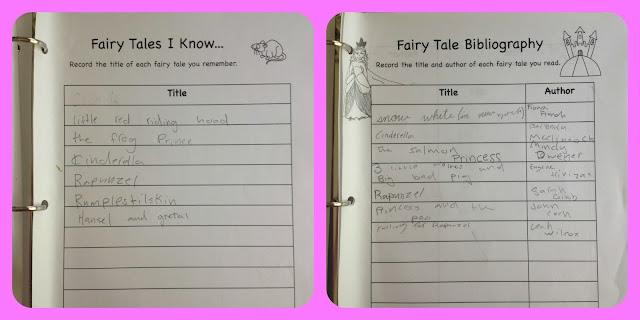 Fairy Tales I Know...
Record the title of each fairy tale you remember.
Title
little red riding hood
the frog Prince
Cinderella
Rapunzel
Rumplestilskin
Hansel and gretal
Fairy Tale Bibliography
Record the title and author of each fairy tale you read.
Title
Author
snow white (in new york)
Fiona
French
Cinderella
Barbara
the Salmon
Princess
Mindy
Dwyer
3 little wolves and
Big bad pig
Eugene
Rapunzel
Sarah
Princess and the
pea
John
Falling for Rapunzel
Leah
wilcox